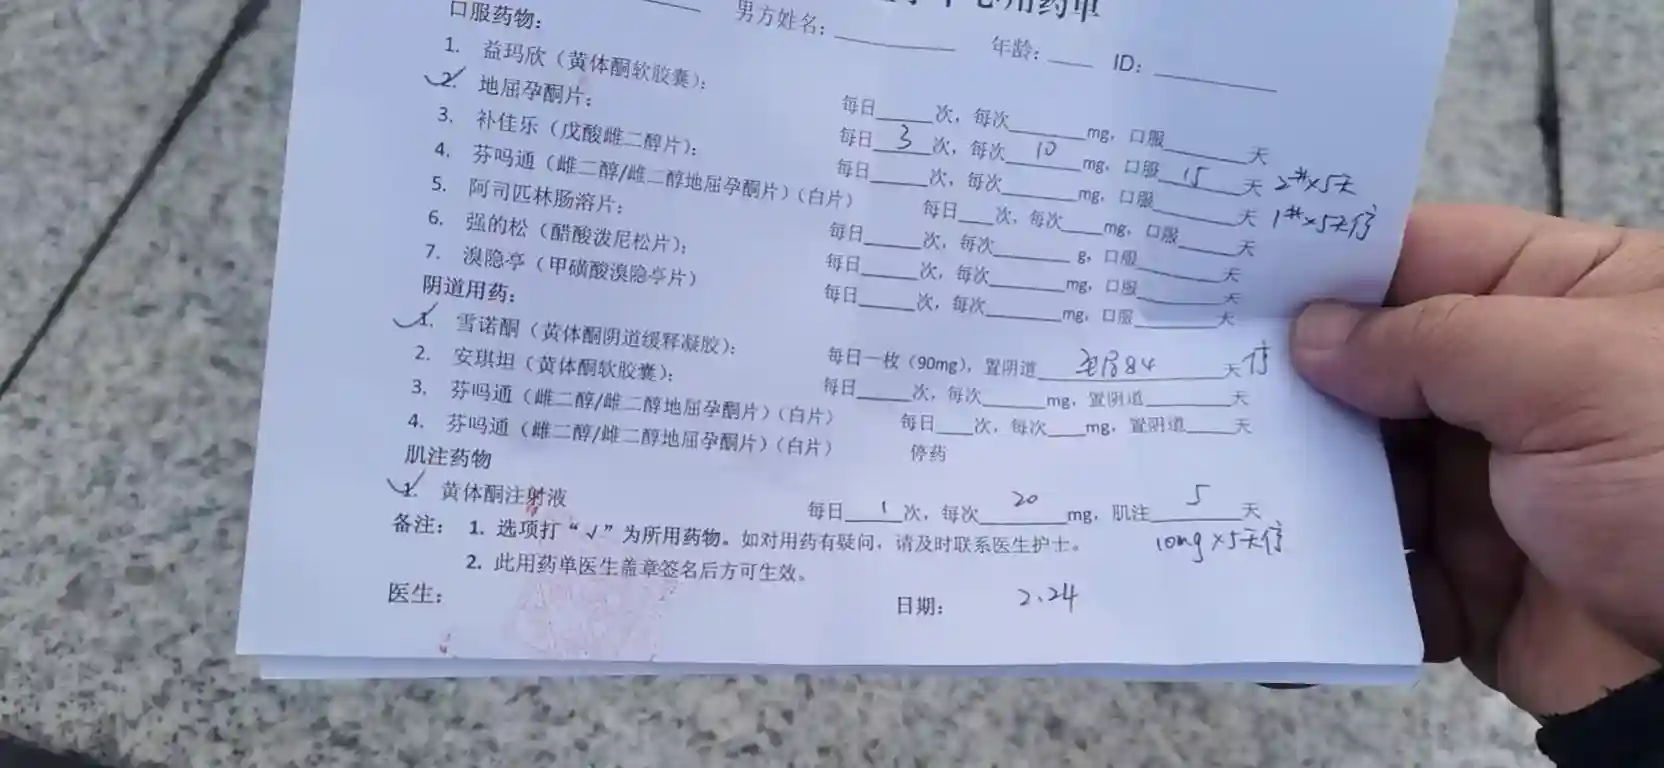 用药单
男方姓名：______ 年龄：____ ID：______
口服药物：
1. 益玛欣（黄体酮软胶囊）： 每日____次，每次____mg，口服____天
2. 地屈孕酮片： 每日 3 次，每次 10 mg，口服 15 天 2#×5天
3. 补佳乐（戊酸雌二醇片）： 每日____次，每次____mg，口服____天 1#×5天停
4. 芬吗通（雌二醇/雌二醇地屈孕酮片）（白片） 每日____次，每次____mg，口服____天
5. 阿司匹林肠溶片： 每日____次，每次____g，口服____天
6. 强的松（醋酸泼尼松片）； 每日____次，每次____mg，口服____天
7. 溴隐亭（甲磺酸溴隐亭片） 每日____次，每次____mg，口服____天
阴道用药：
1. 雪诺酮（黄体酮阴道缓释凝胶）： 每日一枚（90mg），置阴道 84 天停
2. 安琪坦（黄体酮软胶囊）； 每日____次，每次____mg，置阴道____天
3. 芬吗通（雌二醇/雌二醇地屈孕酮片）（白片） 每日____次，每次____mg，置阴道____天
4. 芬吗通（雌二醇/雌二醇地屈孕酮片）（白片） 停药
肌注药物
1. 黄体酮注射液 每日 1 次，每次 20 mg，肌注 5 天
10mg×5天停
备注： 1. 选项打“√”为所用药物。如对用药有疑问，请及时联系医生护士。
2. 此用药单医生盖章签名后方可生效。
医生： 日期： 2.24